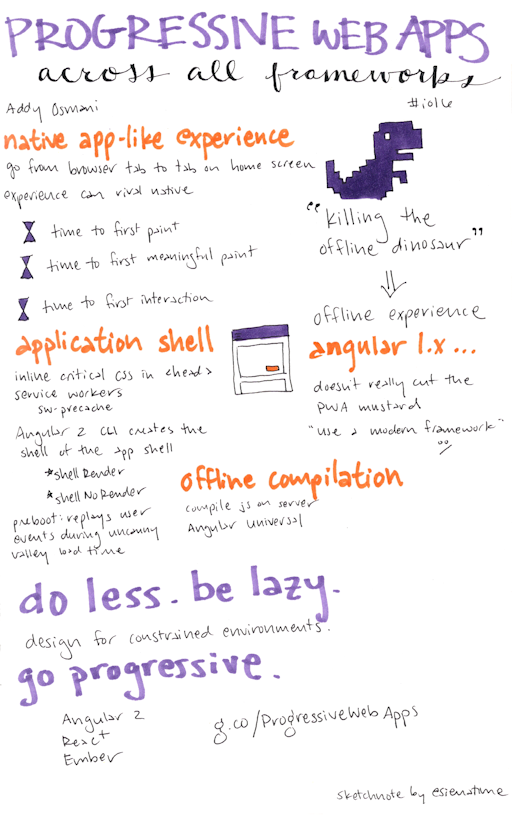 PROGRESSIVE WEB APPS
across all frameworks
Addy Osmani
#io16
native app-like experience
go from browser tab to tab on home screen
experience can rival native
time to first paint
time to first meaningful paint
time to first interaction
"killing the
offline dinosaur"
offline experience
application shell
inline critical css in <head>
service workers
sw-precache
Angular 2 CLI creates the
shell of the app shell
*shellRender
*shellNoRender
preboot: replays user
events during uncanny
valley load time
angular 1.x ...
doesn't really cut the
PWA mustard
"use a modern framework"
offline compilation
compile js on server
Angular Universal
do less. be lazy.
design for constrained environments.
go progressive.
Angular 2
React
Ember
g.co/ProgressiveWebApps
sketchnote by esienatime